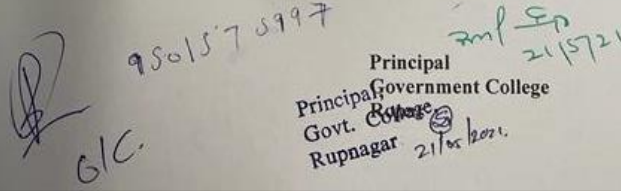 9501575997
21/5/21
Principal
Government College
Principal,
Govt. College,
Rupnagar
21/05/2021.
G/C.